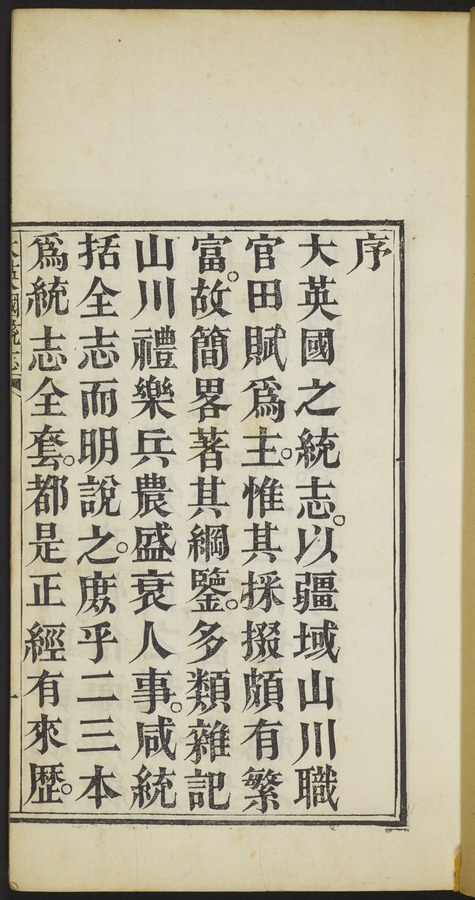 序
大英國之統志。以疆域山川職
官田賦爲主。惟其採掇頗有繁
富。故簡畧著其綱鑒。多類雜記
山川禮樂兵農盛衰人事。咸統
括全志而明說之。庶乎二三本
爲統志全套。都是正經有來歷。
大英國統志
一